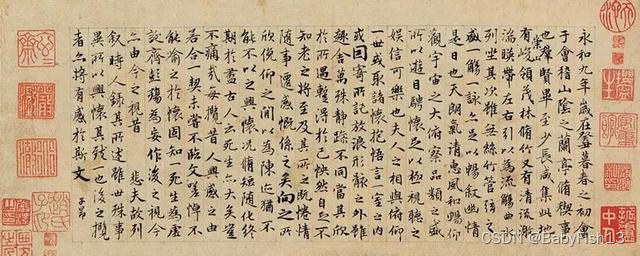 永和九年歲在癸丑暮春之初會
于會稽山陰之蘭亭脩稧事
也羣賢畢至少長咸集此地
有崇山峻領茂林脩竹又有清流激
湍暎帶左右引以為流觴曲水
列坐其次雖無絲竹管弦之
盛一觴一詠亦足以暢敘幽情
是日也天朗氣清惠風和暢仰
觀宇宙之大俯察品類之盛
所以遊目騁懷足以極視聽之
娛信可樂也夫人之相與俯仰
一世或取諸懷抱悟言一室之內
或因寄所託放浪形骸之外雖
趣舍萬殊靜躁不同當其欣
於所遇暫得於己怏然自足不
知老之將至及其所之既惓情
隨事遷感慨係之矣向之所
欣俛仰之間以為陳迹猶不
能不以之興懷況脩短隨化終
期於盡古人云死生亦大矣豈
不痛哉每攬昔人興感之由
若合一契未嘗不臨文嗟悼不
能喻之於懷固知一死生為虛
誕齊彭殤為妄作後之視今
亦由今之視昔悲夫故列
敘時人錄其所述雖世殊事
異所以興懷其致一也後之攬
者亦將有感於斯文
子昂
CSDN @BabyFish13